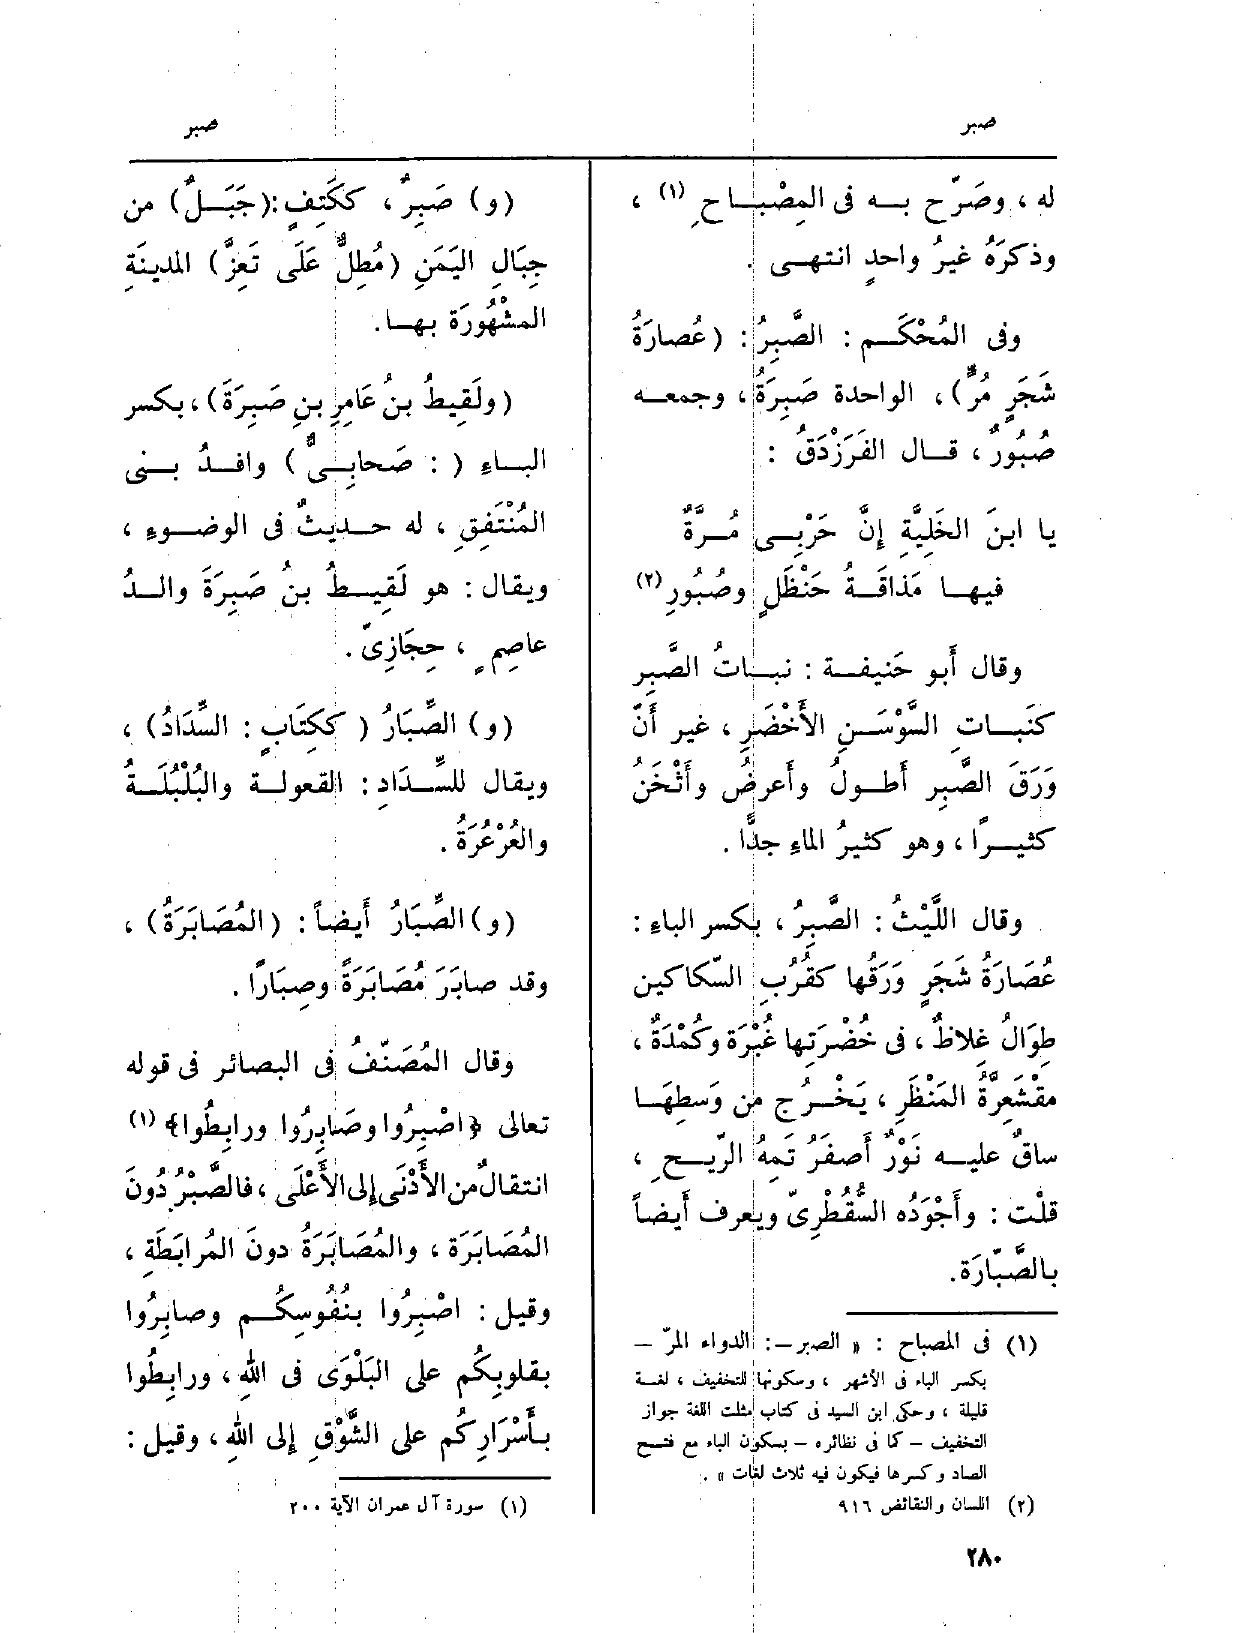 صبر
صبر
له ، وصَرّح بــه فى المِصْبــاحِ (١) ،
وذكرَهُ غيرُ واحدٍ انتهــى .
وفى المُحْكَــم : الصَّبِرُ : (عُصارَةُ
شَجَرٍ مُرٍّ) ، الواحدة صَبِرَةٌ ، وجمعــه
صُبُورٌ ، قــال الفَرَزْدَقُ :
يا ابنَ الخَلِيَّةِ إِنَّ حَرْبِــى مُــرَّةٌ
فيهــا مَذاقَــةُ حَنْظَلٍ وصُبُورِ (٢)
وقال أَبو حَنيفــة : نبــاتُ الصَّبِر
كنَبــات السَّوْسَــنِ الأَخْضَرِ ، غير أَنّ
وَرَقَ الصَّبِر أَطــولُ وأَعرضُ وأَثْخَنُ
كثيــرًا ، وهو كثيرُ الماءِ جدًّا .
وقال اللَّيْثُ : الصَّبِرُ ، بكسر الباءِ :
عُصَارَةُ شَجَرٍ وَرَقُها كقُرُبِ السّكاكين
طِوَالٌ غِلاظٌ ، فى خُضْرَتِها غُبْرَة وكُمْدَةٌ ،
مقْشَعِرَّةُ المَنْظَرِ ، يَخْــرُج من وَسطِهَــا
ساقٌ عليــه نَوْرٌ أَصفَرُ تَمِهُ الرّيــحِ ،
قلْت : وأَجْوَدُه السُّقُطرِىّ ويعرف أَيضاً
بالصَّبّارَة.
(١) فى المصباح : « الصبر–: الدواء المرّ –
بكسر الباء فى الأشهر ، وسكونها للتخفيف ، لغــة
قليلة ، وحكى ابن السيد فى كتاب مثلث اللغة جواز
التخفيف – كما فى نظائره – بسكون الباء مع فتــح
الصاد وكسرها فيكون فيه ثلاث لغات » .
(٢) اللسان والنقائض ٩١٦
(و) صَبِرٌ ، ككَتِفٍ :(جَبَــلٌ) من
جِبَالِ اليَمَنِ (مُطِلٌّ عَلَى تَعِزَّ) المدينَةِ
المشْهُورَة بهــا.
(ولَقِيطُ بنُ عَامِرِ بنِ صَبِرَةَ) ، بكسر
البــاءِ ( : صَحابِــىٌّ ) وافــدُ بــنى
المُنْتَفِقِ ، له حــديثٌ فى الوضــوءِ ،
ويقال : هو لَقِيــطُ بنُ صَبِرَةَ والــدُ
عاصِمٍ ، حِجَازِىّ .
(و) الصِّبَارُ ( ككِتَابٍ : السِّدَادُ) ،
ويقال للسِّــدَادِ : القعولــة والبُلْبُلَــةُ
والعُرْعُرَةُ .
(و) الصِّبَارُ أَيضاً : (المُصَابَرَةُ) ،
وقد صابَرَ مُصَابَرَةً وصِبَارًا .
وقال المُصَنّفُ فى البصائر فى قوله
تعالى ﴿اصْبِرُوا وصَابِرُوا ورابِطُوا﴾ (١)
انتقالٌ من الأَدْنَى إِلى الأَعْلَى ، فالصَّبْرُ دُونَ
المُصَابَرَة ، والمُصَابَرَةُ دونَ المُرابَطَةِ ،
وقيل : اصْبِرُوا بنُفُوسِكُــم وصابِرُوا
بقلوبِكُم على البَلْوَى فى اللهِ ، ورابِطُوا
بأَسْرَارِكُم على الشَّوْقِ إِلى اللهِ ، وقيل :
(١) سورة آل عمران الآية ٢٠٠
٢٨٠